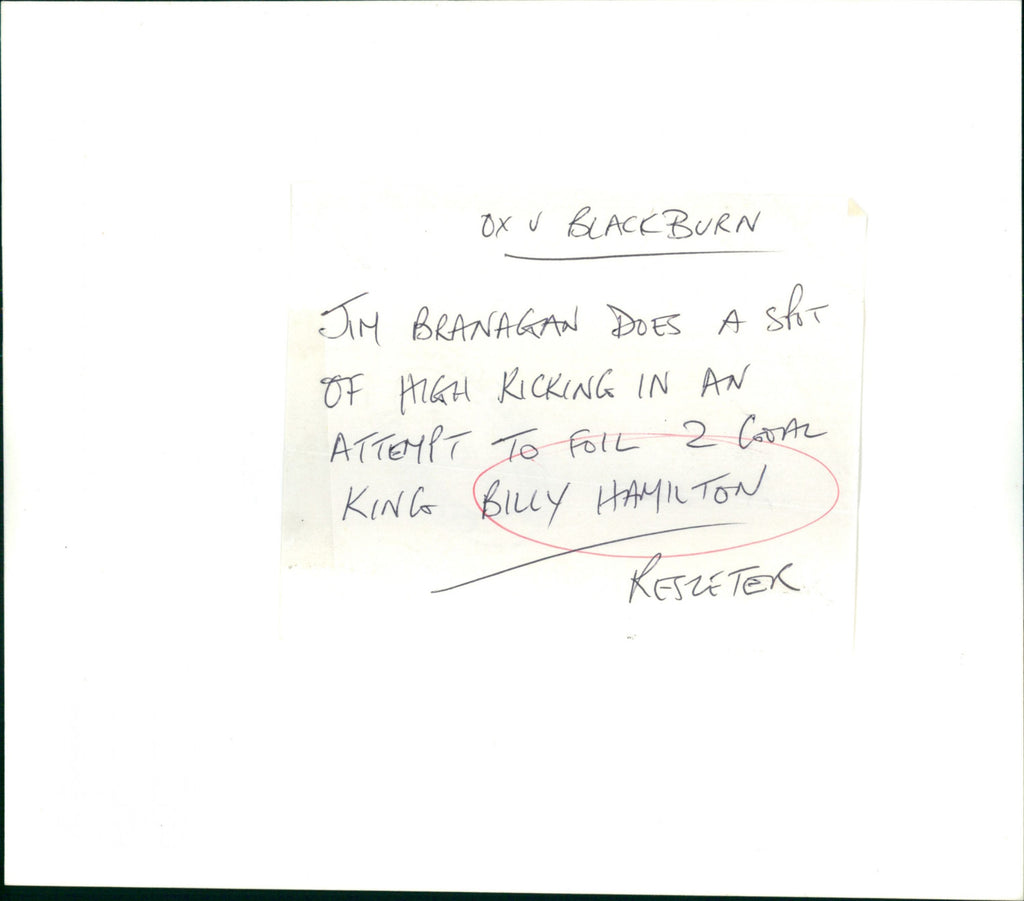 OX V BLACKBURN
JIM BRANAGAN DOES A SPOT
OF HIGH KICKING IN AN
ATTEMPT TO FOIL 2 GOAL
KING BILLY HAMILTON
RESZETER